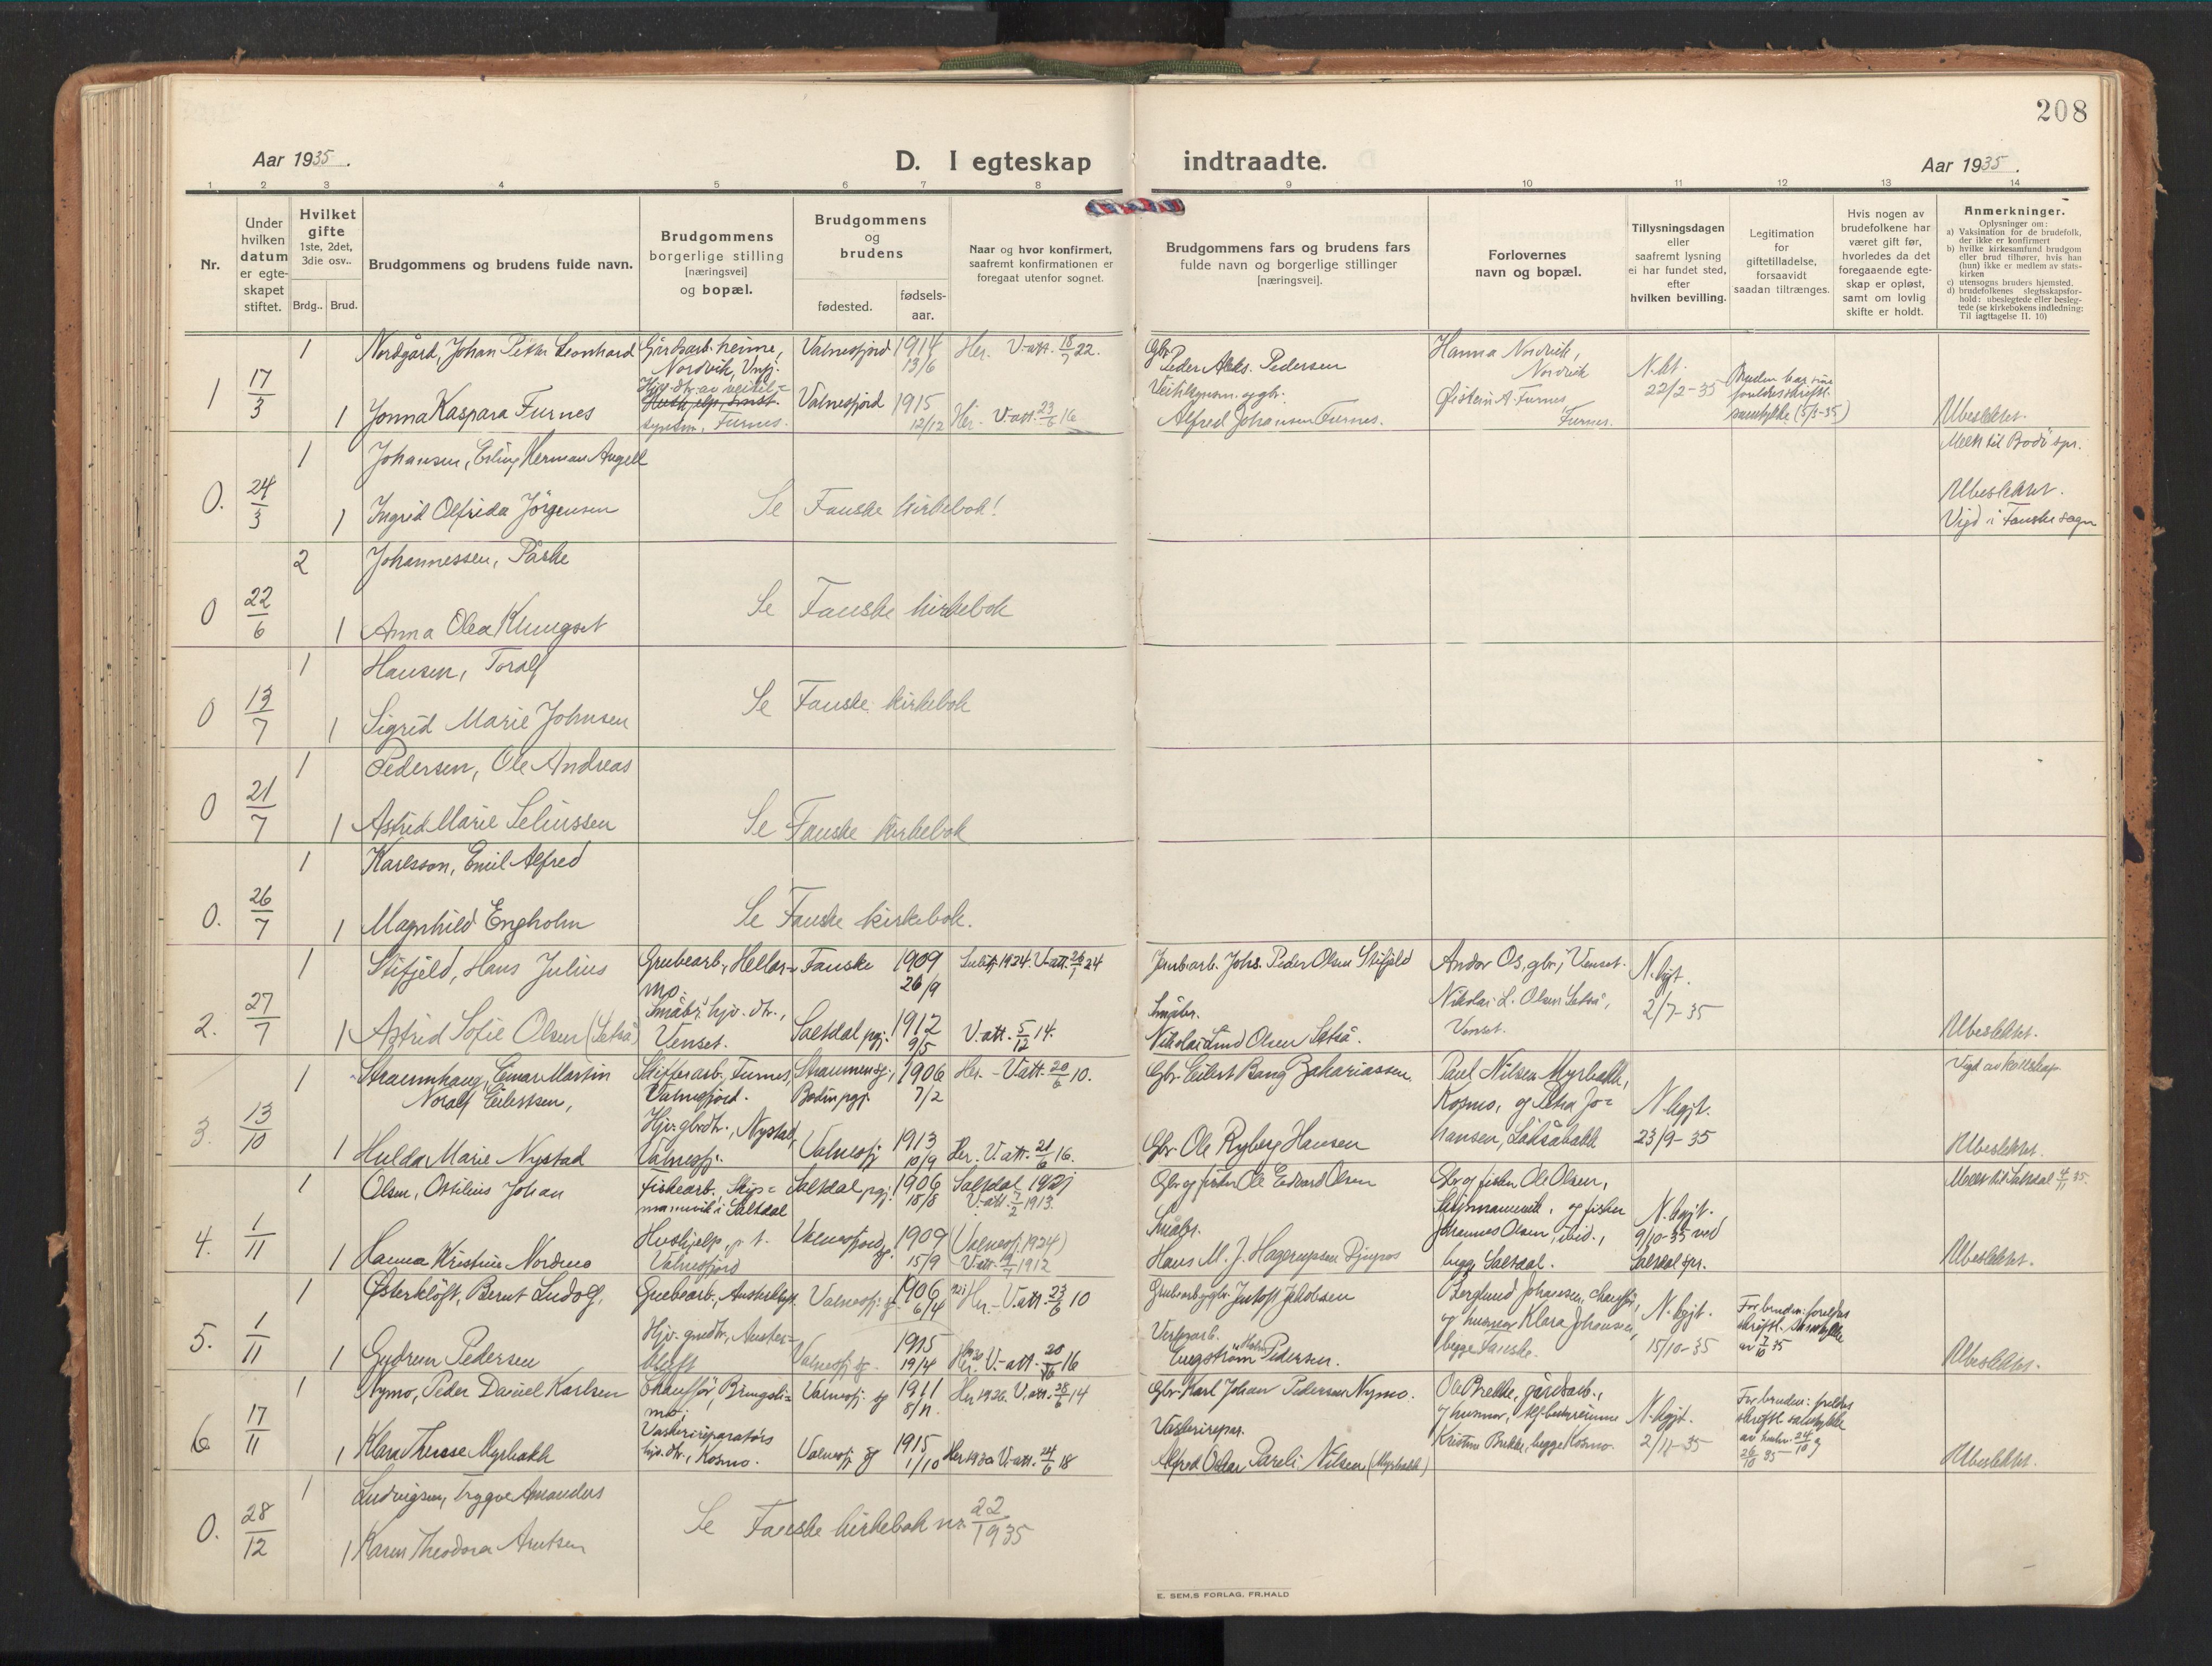 208
Aar 1935.
D. I egteskap
indtraadte.
Aar 1935.
1 2 3 4 5 6 7 8 9 10 11 12 13 14
Nr.
Under
hvilken
datum
er egte-
skapet
stiftet.
Hvilket
gifte
1ste, 2det,
3die osv..
Brdg..
Brud.
Brudgommens og brudens fulde navn.
Brudgommens
borgerlige stilling
[næringsvei]
og bopæl.
Brudgommens
og
brudens
fødested.
fødsels-
aar.
Naar og hvor konfirmert,
saafremt konfirmationen er
foregaat utenfor sognet.
Brudgommens fars og brudens fars
fulde navn og borgerlige stillinger
[næringsvei].
Forlovernes
navn og bopæl.
Tillysningsdagen
eller
saafremt lysning
ei har fundet sted,
efter
hvilken bevilling.
Legitimation
for
giftetilladelse,
forsaavidt
saadan tiltrænges.
Hvis nogen av
brudefolkene har
været gift før,
hvorledes da det
foregaaende egte-
skap er opløst,
samt om lovlig
skifte er holdt.
Anmerkninger.
Oplysninger om:
a) Vaksination for de brudefolk,
der ikke er konfirmert
b) hvilke kirkesamfund brudgom
eller brud tilhører, hvis han
(hun) ikke er medlem av stats-
kirken
c) utensogns bruders hjemsted.
d) brudefolkenes slegtsskapsfor-
hold: ubeslegtede eller besleg-
tede (se kirkebokens indledning:
Til iagttagelse II. 10)
1 17/3
1 Nordgård, Johan Petter Leonhard
Gårdsarb. heime,
Nordvik, Vnfj.
Valnesfjord 1914
13/6
Her. V-att. 18/7 22.
Gbr.
Peder Aleks. Pedersen
Hanna Nordvik,
Nordvik
N. kt.
22/2-35
Bruden har sine
foreldres skriftl.
samtykke (5/3-35)
1 Jonna Kaspara Furnes
Furnes.
Valnesfjord 1915
12/12
Her. V-att. 23/6 16
Alfred Johansen Furnes.
Øistein A. Furnes
Furnes.
Ubeslektet.
0. 24/3
1 Johansen, Erling Herman Angell
Meldt til Bodö spr.
1 Ingrid Olfrida Jörgensen
Se Fauske kirkebok!
Ubeslektet.
Vigd i Fauske sogn
0 22/6
2 Johannessen, Påske
1 Anna Olea Klungset
Se Fauske kirkebok
0 13/7
1 Hansen, Toralf
1 Sigrid Marie Johnsen
Se Fauske kirkebok
0 21/7
1 Pedersen, Ole Andreas
1 Astrid Marie Seliussen
Se Fauske kirkebok
0. 26/7
1 Karlsson, Emil Alfred
1 Magnhild Engholm
Se Fauske kirkebok.
2. 27/7
1 Stifjeld, Hans Julius
Grubearb., Hellar-
mo.
Fauske 1909
26/9
1924. V-att. 26/1 24
Grubarb. Johs. Peder Olsen Stifjeld
Andor Os, gbr., Venset.
N. kgjt.
2/7-35
1 Astrid Sofie Olsen (Setså)
Småbr. hjv. dtr.,
Venset.
Saltdal pgj. 1912
9/5
V-att. 5/12 14.
Småbr.
Nikolai Lund Olsen Setså.
Nikolai L. Olsen Setså,
Venset.
Ubeslektet.
3. 13/10
1 Straumhaug, Einar Martin
Noralf Eilertsen,
Skifferarb. Furnes,
Valnesfjord.
Straumen sg.,
Bodin pgj. 1906
7/2
Her. - V-att. 20/6 10.
Gbr. Eilert Bang Zakariassen.
Paul Nilsen Myrbakk,
Kosmo, og Petra Jo-
hansen, Låksåbakk
N. kgjt.
23/9-35
1 Hulda Marie Nystad
Hjv. gbrdtr., Nystad,
Valnesfj.
Valnesfj 1913
10/9
Her. V. att. 21/6 16.
Gbr. Ole Ryberg Hansen
Ubeslektet.
4. 1/11
1 Olsen, Ottilius Johan
Fiskearb., Skip-
mannvik i Saltdal
Saltdal pgj. 1906
18/8
Saltdal 1921
V-att. 7/2 1913.
Gbr og fisker Ole Edvard Olsen
Gbr og fisker Ole Olsen,
Skipmannvik, og fisker
Johannes Olsen, ibid.,
begge Saltdal.
N. kgjt.
9/10-35 ved
Saltdal spr.
Meldt til Saltdal 4/11 35.
1 Hanna Kristine Nordmo
Hushjelp, p. t.
Valnesfjord
Valnesfjord sg. 1909
15/9
(Valnesfj. 1924)
Småbr.
Hans M. J. Hagerupsen
Ubeslektet.
5. 1/11
1 Østerkløft, Bernt Ludolf,
Grubearb., Austerkløft
Valnesfj. sg. 1906
6/4
Her. - V. att. 23/6 10
Jentoft Jakobsen
Berglund Johansen, chauffør,
og husmor Klara Johansen,
begge Fauske.
N. kgjt.
15/10-35
For bruden: foreldres
skriftl. samtykke
av 7/10 35
1 Gudrun Pedersen
Hjv. grdtr., Auster-
kløft
Valnesfj. sg. 1915
19/4
Her. V.-att. 20/6 16
Engström Pedersen.
Ubeslektet.
6 17/11
1 Nymo, Peder Daniel Karlsen
Chauffør, Bringsli-
mo,
Valnesfj. sg 1911
8/11.
Her 1926. V. att. 28/6 14
Gbr. Karl Johan Pedersen Nymo.
Ole Brekke, gårdsarb.,
Kristine Brekke, begge Kosmo.
N. kgjt.
2/11-35
For bruden: foreldres
skriftl. samtykke
1 Klara Therese Myrbakk
hjv. dtr., Kosmo.
Valnesfj sg 1915
1/10
Her 1930 V-att. 24/6 18
Alfred Oskar Pareli Nilsen (Myrbakk)
Ubeslektet.
0. 28/12
1 Ludvigsen, Trygve Amandus
1 Karen Theodora Arntsen
Se Fauske kirkebok nr. 22/1935
E. SEM,S FORLAG, FR.HALD